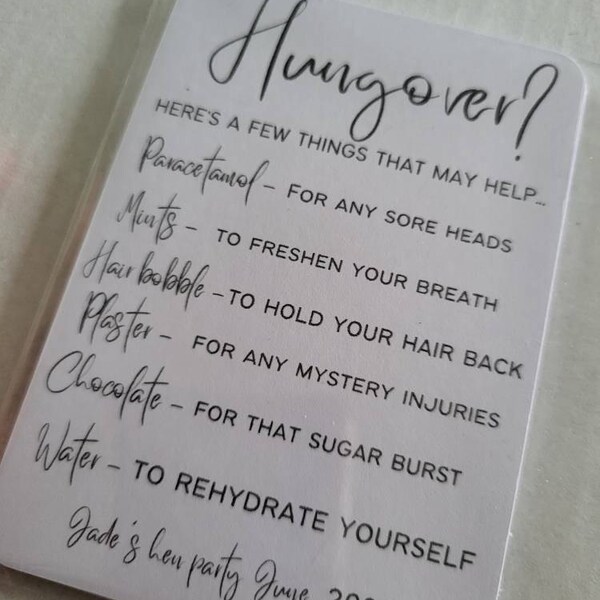 Hungover?
HERE'S A FEW THINGS THAT MAY HELP...
Paracetamol - FOR ANY SORE HEADS
Mints - TO FRESHEN YOUR BREATH
Hair bobble - TO HOLD YOUR HAIR BACK
Plaster - FOR ANY MYSTERY INJURIES
Chocolate - FOR THAT SUGAR BURST
Water - TO REHYDRATE YOURSELF
Jade's hen party June